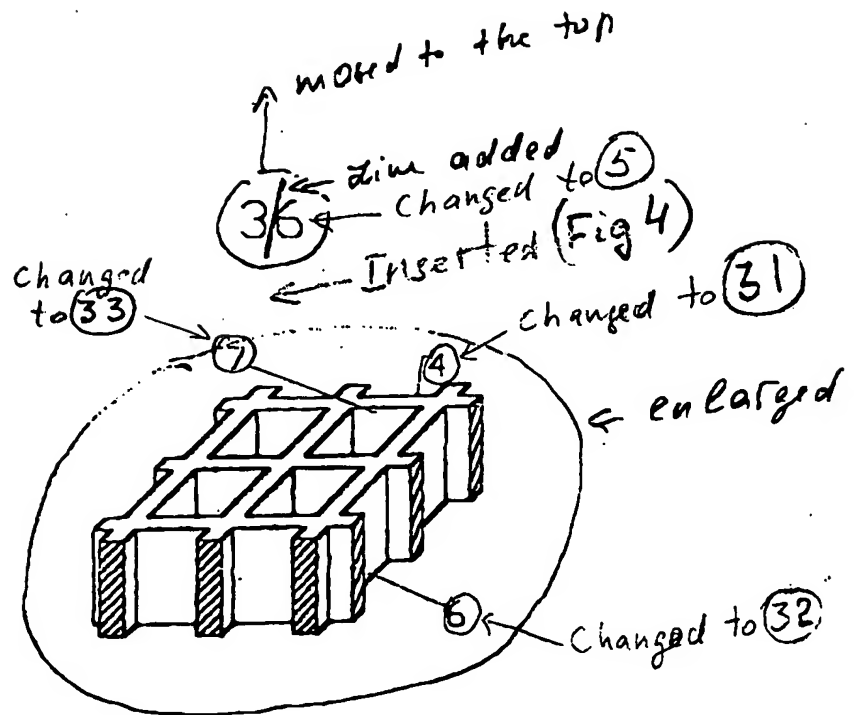 moved to the top
Line added
3/6 Changed to 5
Inserted (Fig 4)
changed to 33
7
4
changed to 31
enlarged
6
Changed to 32